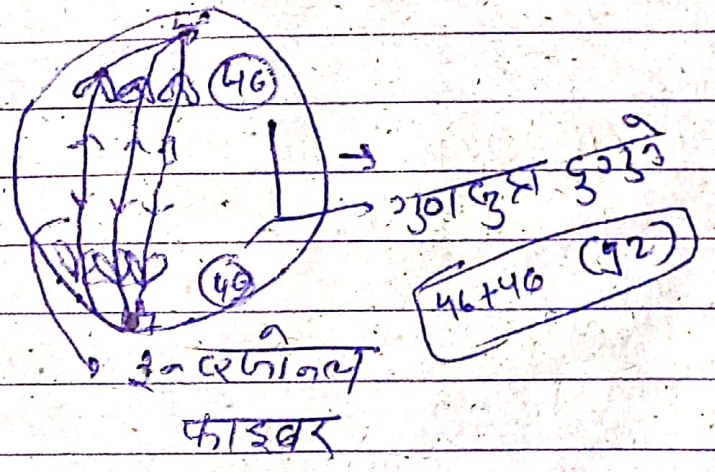 46
→ गुणसुत्र दुगुने
46
46+46 (92)
इन्टरजोनल
फाइबर